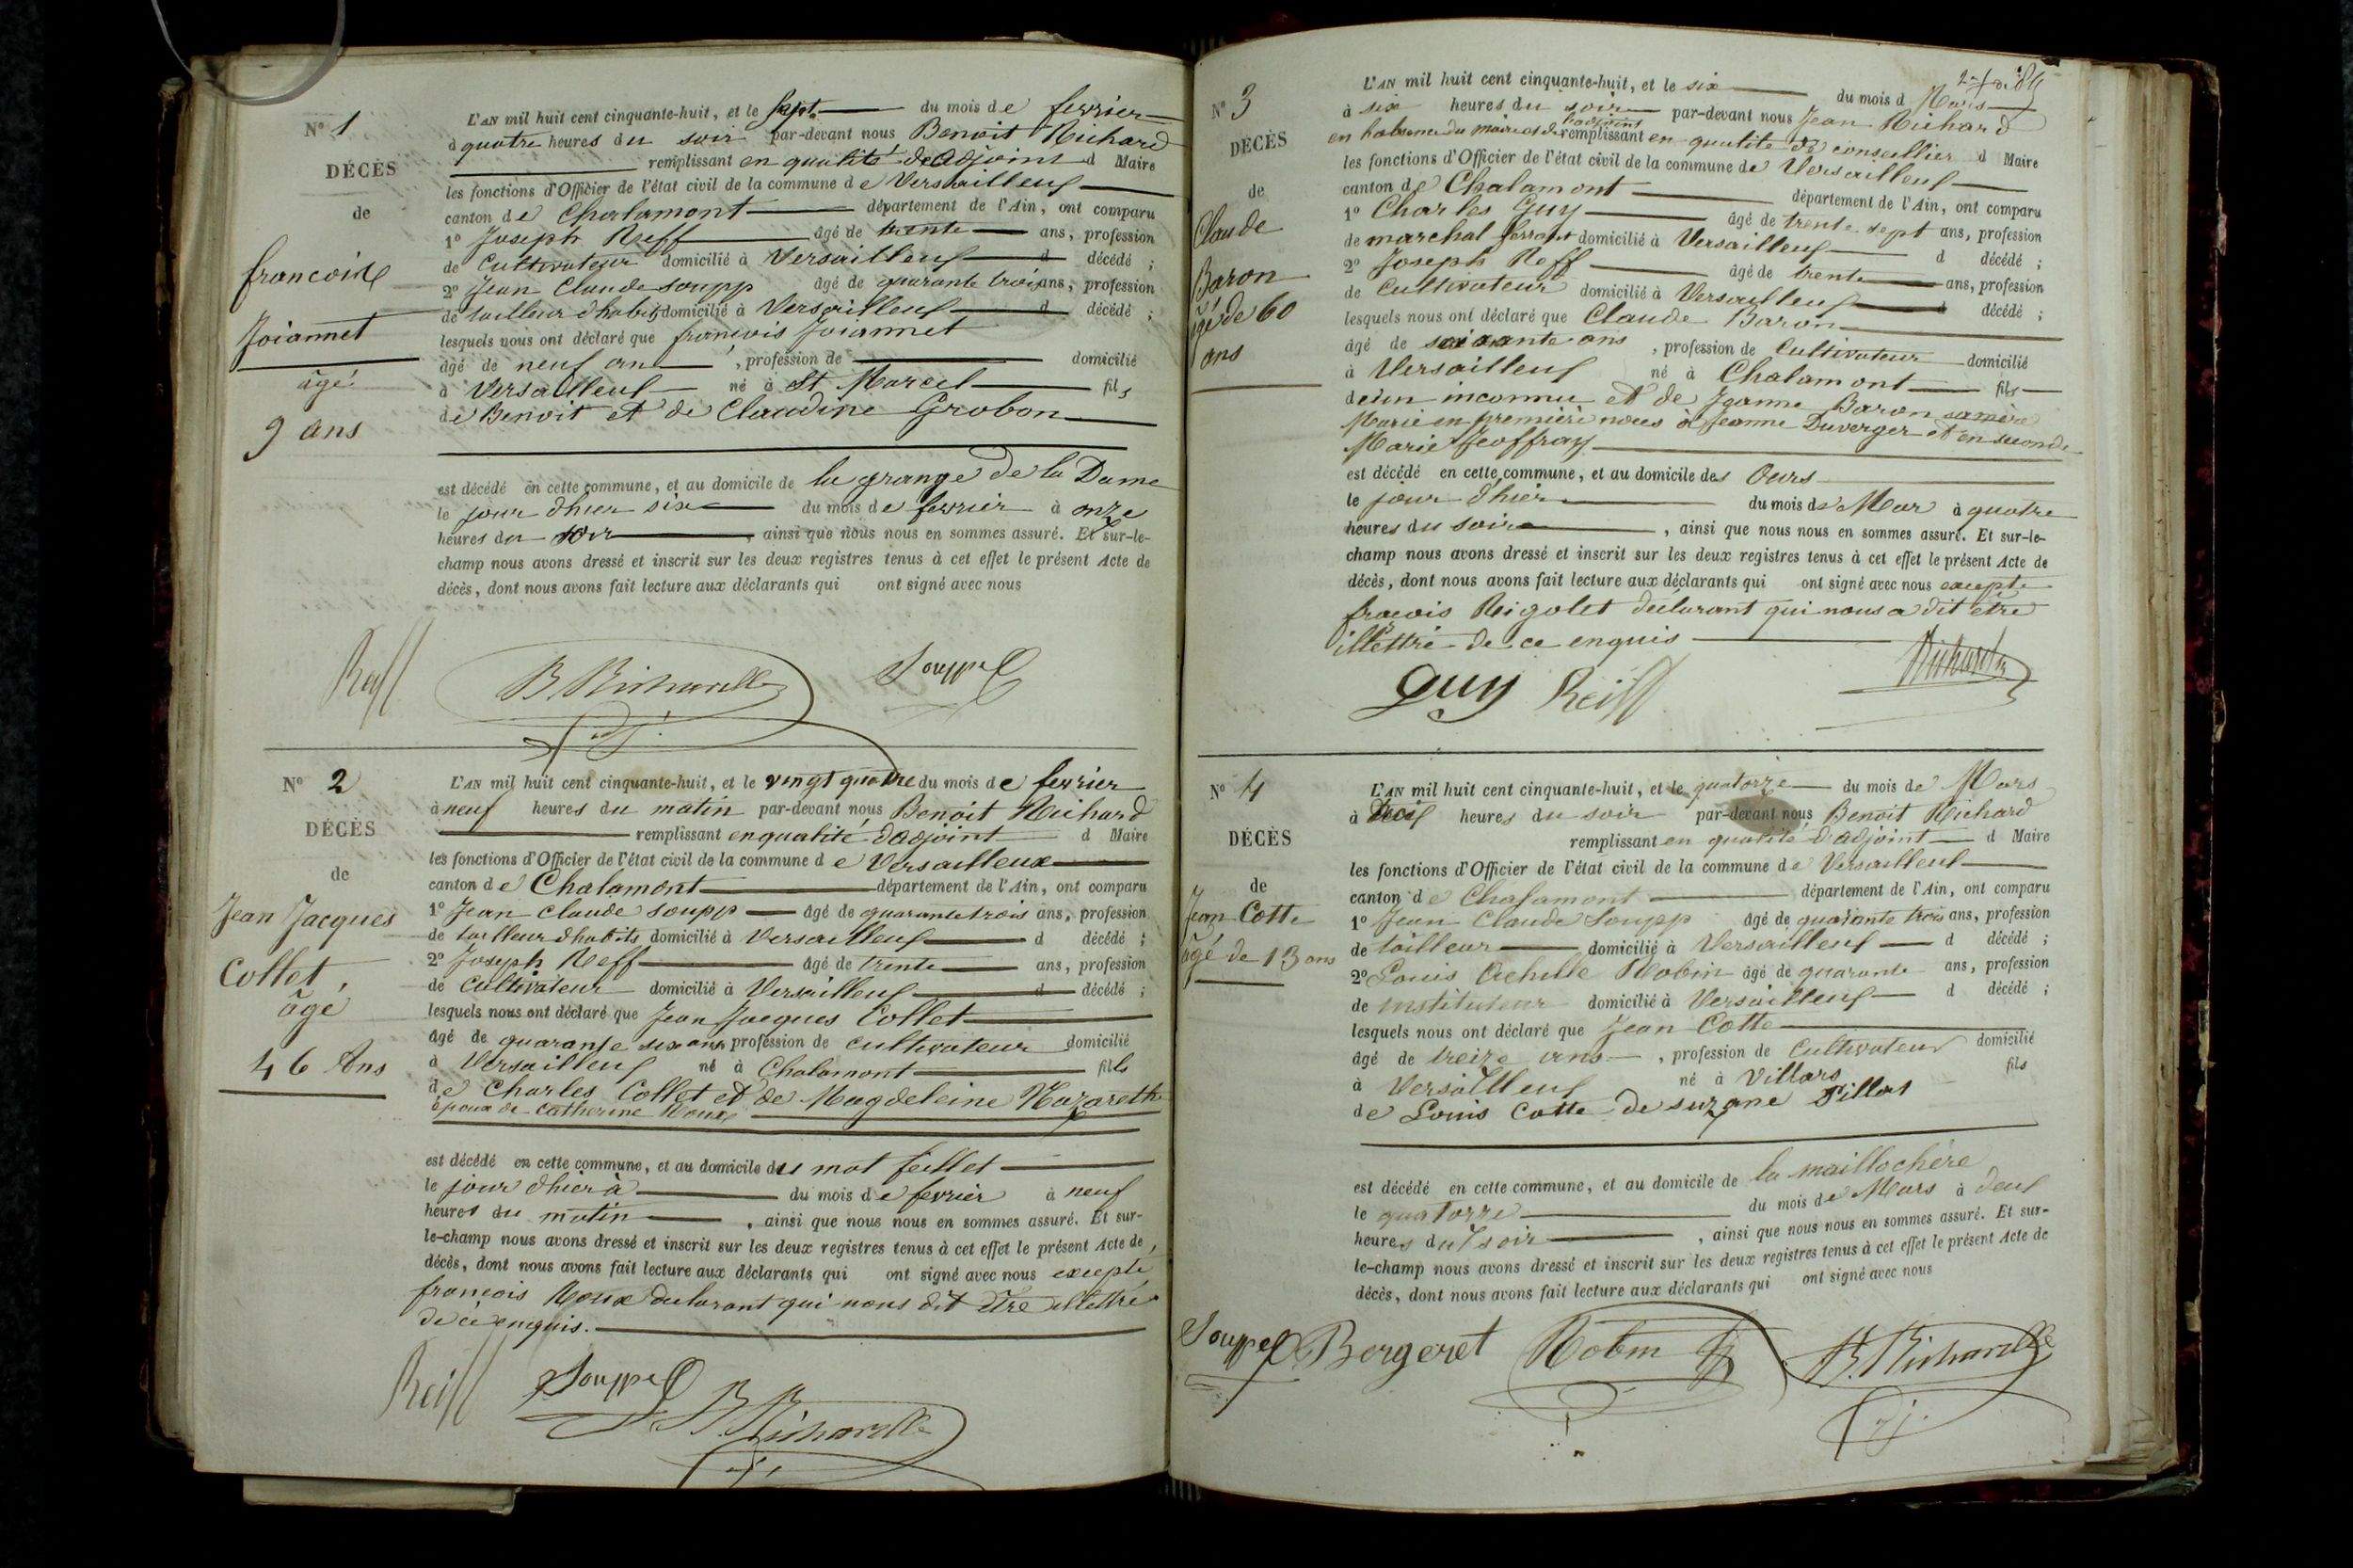 N° 1
DÉCÈS
de
francoise
Joiannet
âgé
9 ans
L'AN mil huit cent cinquante-huit, et le sept du mois de fevrier
à quatre heures du soir par-devant nous Benoit Richard
remplissant en qualité de adjoint d Maire
les fonctions d'Officier de l'état civil de la commune de Versailleux
canton de Chalamont département de l'Ain, ont comparu
1° Joseph Reff âgé de trente ans, profession
de Cultivateur domicilié à Versailleux d décédé ;
2° Jean Claude Soupp âgé de quarante trois ans, profession
de tailleur d'habits domicilié à Versailleux d décédé ;
lesquels nous ont déclaré que francois Joiannet
âgé de neuf ans, profession de domicilié
à Versailleux né à St Marcel fils
de Benoit et de Claudine Grobon
est décédé en cette commune, et au domicile de la grange de la Dame
le jour dhier six du mois de fevrier à onze
heures du soir, ainsi que nous nous en sommes assuré. Et sur-le-
champ nous avons dressé et inscrit sur les deux registres tenus à cet effet le présent Acte de
décès, dont nous avons fait lecture aux déclarants qui ont signé avec nous
Reiff B. Richard Souppe
N° 2
DÉCÈS
de
Jean Jacques
Collet
âgé
46 Ans
L'AN mil huit cent cinquante-huit, et le vingt quatre du mois de fevrier
à neuf heures du matin par-devant nous Benoit Richard
remplissant en qualité d'adjoint d Maire
les fonctions d'Officier de l'état civil de la commune de Versailleux
canton de Chalamont département de l'Ain, ont comparu
1° Jean claude Soupp âgé de quarante trois ans, profession
de tailleur dhabits domicilié à Versailleux d décédé ;
2° Joseph Reff âgé de trente ans, profession
de Cultivateur domicilié à Versailleux d décédé ;
lesquels nous ont déclaré que Jean Jacques Collet
âgé de quarante six ans profession de cultivateur domicilié
à Versailleux né à Chalamont fils
de Charles Collet et de Magdeleine Nazareth
époux de Catherine Roux
est décédé en cette commune, et au domicile des mat feillet
le jour dhier à du mois de fevrier à neuf
heures du matin, ainsi que nous nous en sommes assuré. Et sur-
le-champ nous avons dressé et inscrit sur les deux registres tenus à cet effet le présent Acte de
décès, dont nous avons fait lecture aux déclarants qui ont signé avec nous excepté
francois Roux declarant qui nous dit être illettré
de ce enquis.
Reiff Souppe B. Richard
N° 3
DÉCÈS
de
Claude
Baron
âgé de 60
ans
L'AN mil huit cent cinquante-huit, et le six du mois d Mars
à six heures du soir par-devant nous Jean Richard
en habsence du maire et de l'adjoint remplissant en qualité de conseillier d Maire
les fonctions d'Officier de l'état civil de la commune de Versailleux
canton de Chalamont département de l'Ain, ont comparu
1° Charles Guy âgé de trente sept ans, profession
de marchal ferrant domicilié à Versailleux d décédé ;
2° Joseph Reff âgé de trente ans, profession
de Cultivateur domicilié à Versailleux d décédé ;
lesquels nous ont déclaré que Claude Baron
âgé de soixante ans, profession de Cultivateur domicilié
à Versailleux né à Chalamont fils
de un inconnu et de Jeanne Baron sa mère
Marié en premiere noces à Jeanne Duverger et en seconde
Marie Jeoffray
est décédé en cette commune, et au domicile des Ours
le jour dhier du mois de Mar à quatre
heures du soir, ainsi que nous nous en sommes assuré. Et sur-le-
champ nous avons dressé et inscrit sur les deux registres tenus à cet effet le présent Acte de
décès, dont nous avons fait lecture aux déclarants qui ont signé avec nous excepté
fracois Rigolet declarant qui nous a dit être
illettré de ce enquis
Guy Reiff Richard
N° 4
DÉCÈS
de
Jean Cotte
âgé de 13 ans
L'AN mil huit cent cinquante-huit, et le quatorze du mois de Mars
à trois heures du soir par-devant nous Benoit Richard
remplissant en qualité d'adjoint d Maire
les fonctions d'Officier de l'état civil de la commune de Versailleux
canton de Chalamont département de l'Ain, ont comparu
1° Jean Claude Soupp âgé de quarante trois ans, profession
de tailleur domicilié à Versailleux d décédé ;
2° Louis Achille Robin âgé de quarante ans, profession
de instituteur domicilié à Versailleux d décédé ;
lesquels nous ont déclaré que Jean Cotte
âgé de treize ans, profession de Cultivateur domicilié
à Versailleux né à Villars fils
de Louis Cotte de suzane Pillat
est décédé en cette commune, et au domicile de la maillochère
le quatorze du mois de Mars à deux
heures du soir, ainsi que nous nous en sommes assuré. Et sur-
le-champ nous avons dressé et inscrit sur les deux registres tenus à cet effet le présent Acte de
décès, dont nous avons fait lecture aux déclarants qui ont signé avec nous
Souppe Bergeret Robin B. Richard